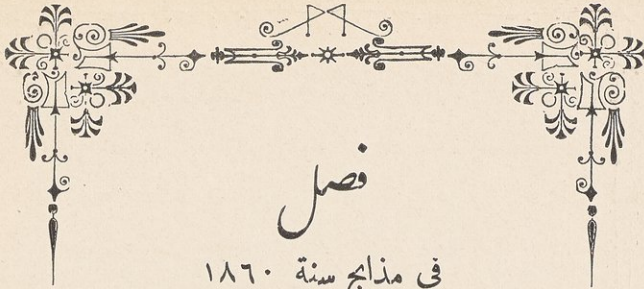 فصل
في مذابح سنة ١٨٦٠